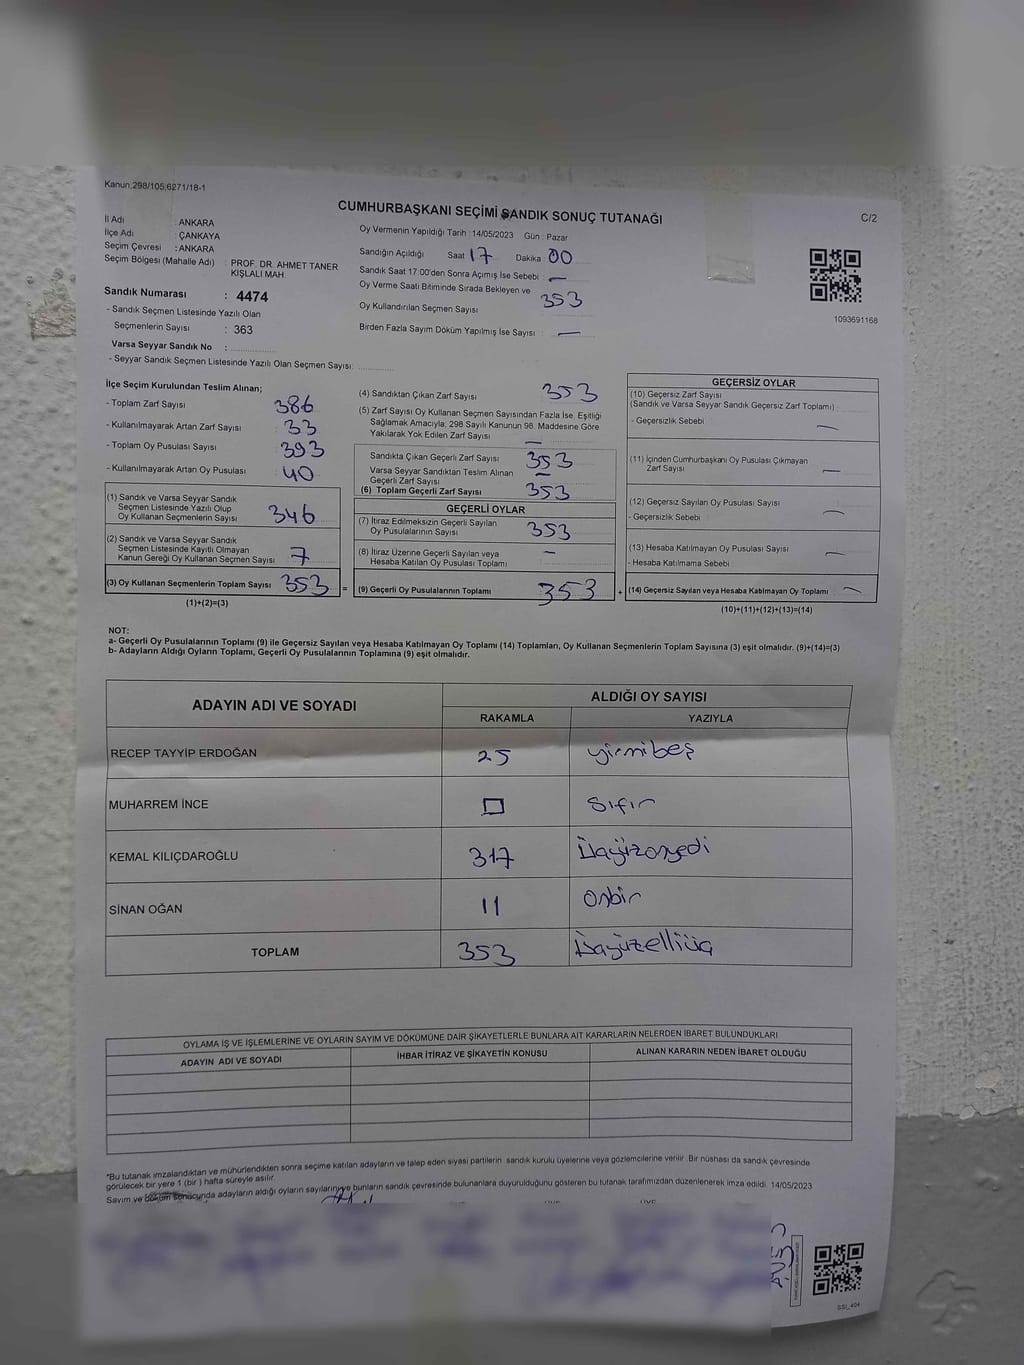 Kanun:298/105,6271/18-1
CUMHURBAŞKANI SEÇİMİ SANDIK SONUÇ TUTANAĞI
C/2
İl Adı : ANKARA
İlçe Adı : ÇANKAYA
Seçim Çevresi : ANKARA
Seçim Bölgesi (Mahalle Adı) : PROF. DR. AHMET TANER
KIŞLALI MAH.
Sandık Numarası : 4474
- Sandık Seçmen Listesinde Yazılı Olan
Seçmenlerin Sayısı : 363
Varsa Seyyar Sandık No :
- Seyyar Sandık Seçmen Listesinde Yazılı Olan Seçmen Sayısı:
Oy Vermenin Yapıldığı Tarih : 14/05/2023 Gün : Pazar
Sandığın Açıldığı Saat 17 Dakika : 00
Sandık Saat 17:00'den Sonra Açımış İse Sebebi : —
Oy Verme Saati Bitiminde Sırada Bekleyen ve
Oy Kullandırılan Seçmen Sayısı 353
Birden Fazla Sayım Döküm Yapılmış İse Sayısı : —
1093691168
İlçe Seçim Kurulundan Teslim Alınan;
- Toplam Zarf Sayısı 386
- Kullanılmayarak Artan Zarf Sayısı : 33
- Toplam Oy Pusulası Sayısı 393
- Kullanılmayarak Artan Oy Pusulası : 40
(1) Sandık ve Varsa Seyyar Sandık
Seçmen Listesinde Yazılı Olup
Oy Kullanan Seçmenlerin Sayısı : 346
(2) Sandık ve Varsa Seyyar Sandık
Seçmen Listesinde Kayıtlı Olmayan
Kanun Gereği Oy Kullanan Seçmen Sayısı : 7
(3) Oy Kullanan Seçmenlerin Toplam Sayısı : 353 =
(1)+(2)=(3)
(4) Sandıktan Çıkan Zarf Sayısı 353
(5) Zarf Sayısı Oy Kullanan Seçmen Sayısından Fazla İse, Eşitliği
Sağlamak Amacıyla; 298 Sayılı Kanunun 98. Maddesine Göre
Yakılarak Yok Edilen Zarf Sayısı —
Sandıkta Çıkan Geçerli Zarf Sayısı 353
Varsa Seyyar Sandıktan Teslim Alınan
Geçerli Zarf Sayısı —
(6) Toplam Geçerli Zarf Sayısı 353
GEÇERLİ OYLAR
(7) İtiraz Edilmeksizin Geçerli Sayılan
Oy Pusulalarının Sayısı 353
(8) İtiraz Üzerine Geçerli Sayılan veya
Hesaba Katılan Oy Pusulası Toplamı —
(9) Geçerli Oy Pusulalarının Toplamı 353 +
GEÇERSİZ OYLAR
(10) Geçersiz Zarf Sayısı
(Sandık ve Varsa Seyyar Sandık Geçersiz Zarf Toplamı) :
- Geçersizlik Sebebi —
(11) İçinden Cumhurbaşkanı Oy Pusulası Çıkmayan
Zarf Sayısı —
(12) Geçersiz Sayılan Oy Pusulası Sayısı —
- Geçersizlik Sebebi
(13) Hesaba Katılmayan Oy Pusulası Sayısı —
- Hesaba Katılmama Sebebi
(14) Geçersiz Sayılan veya Hesaba Katılmayan Oy Toplamı —
(10)+(11)+(12)+(13)=(14)
NOT:
a- Geçerli Oy Pusulalarının Toplamı (9) ile Geçersiz Sayılan veya Hesaba Katılmayan Oy Toplamı (14) Toplamları, Oy Kullanan Seçmenlerin Toplam Sayısına (3) eşit olmalıdır. (9)+(14)=(3)
b- Adayların Aldığı Oyların Toplamı, Geçerli Oy Pusulalarının Toplamına (9) eşit olmalıdır.
ADAYIN ADI VE SOYADI ALDIĞI OY SAYISI
RAKAMLA YAZIYLA
RECEP TAYYİP ERDOĞAN 25 yirmibeş
MUHARREM İNCE 0 Sıfır
KEMAL KILIÇDAROĞLU 317 Üçyüzonyedi
SİNAN OĞAN 11 Onbir
TOPLAM 353 Üçyüzelliüç
OYLAMA İŞ VE İŞLEMLERİNE VE OYLARIN SAYIM VE DÖKÜMÜNE DAİR ŞİKAYETLERLE BUNLARA AİT KARARLARIN NELERDEN İBARET BULUNDUKLARI
ADAYIN ADI VE SOYADI İHBAR İTİRAZ VE ŞİKAYETİN KONUSU ALINAN KARARIN NEDEN İBARET OLDUĞU
*Bu tutanak imzalandıktan ve mühürlendikten sonra seçime katılan adayların ve talep eden siyasi partilerin sandık kurulu üyelerine veya gözlemcilerine verilir. Bir nüshası da sandık çevresinde
görülecek bir yere 1 (bir ) hafta süreyle asılır.
Sayım ve döküm sonucunda adayların aldığı oyların sayılarını ve bunların sandık çevresinde bulunanlara duyurulduğunu gösteren bu tutanak tarafımızdan düzenlenerek imza edildi. 14/05/2023
SSİ_404